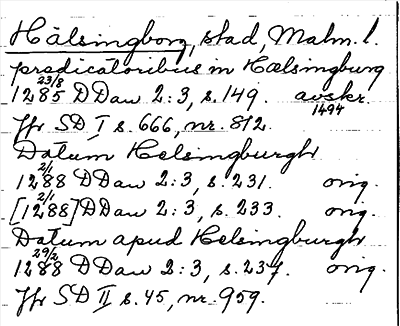 Hälsingborg, stad, Malm. l.
predicatoribus in Hælsingburg
1285 23/8 DDan 2:3, s. 149. avskr. 1494
Jfr SD I s. 666, nr. 812.
Datum Helsingburgh
1288 2/1 DDan 2:3, s. 231. orig.
[1288] 2/1 DDan 2:3, s. 233. orig.
Datum apud Helsingburgh
1288 29/2 DDan 2:3, s. 237. orig.
Jfr SD II s. 45, nr. 959.